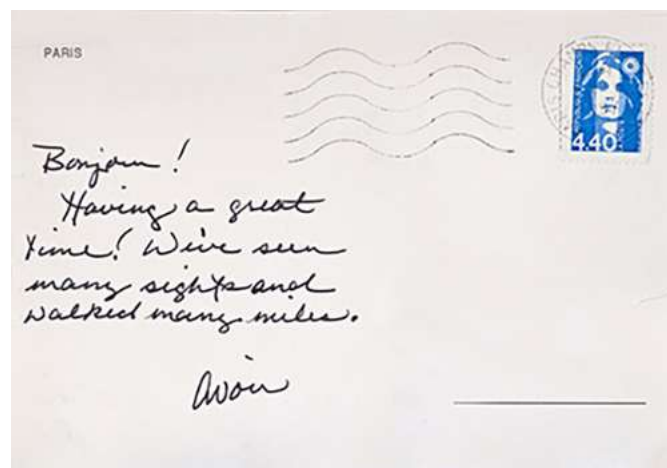 PARIS
4.40
Bonjour!
Having a great
time! We've seen
many sights and
walked many miles.
Avoir